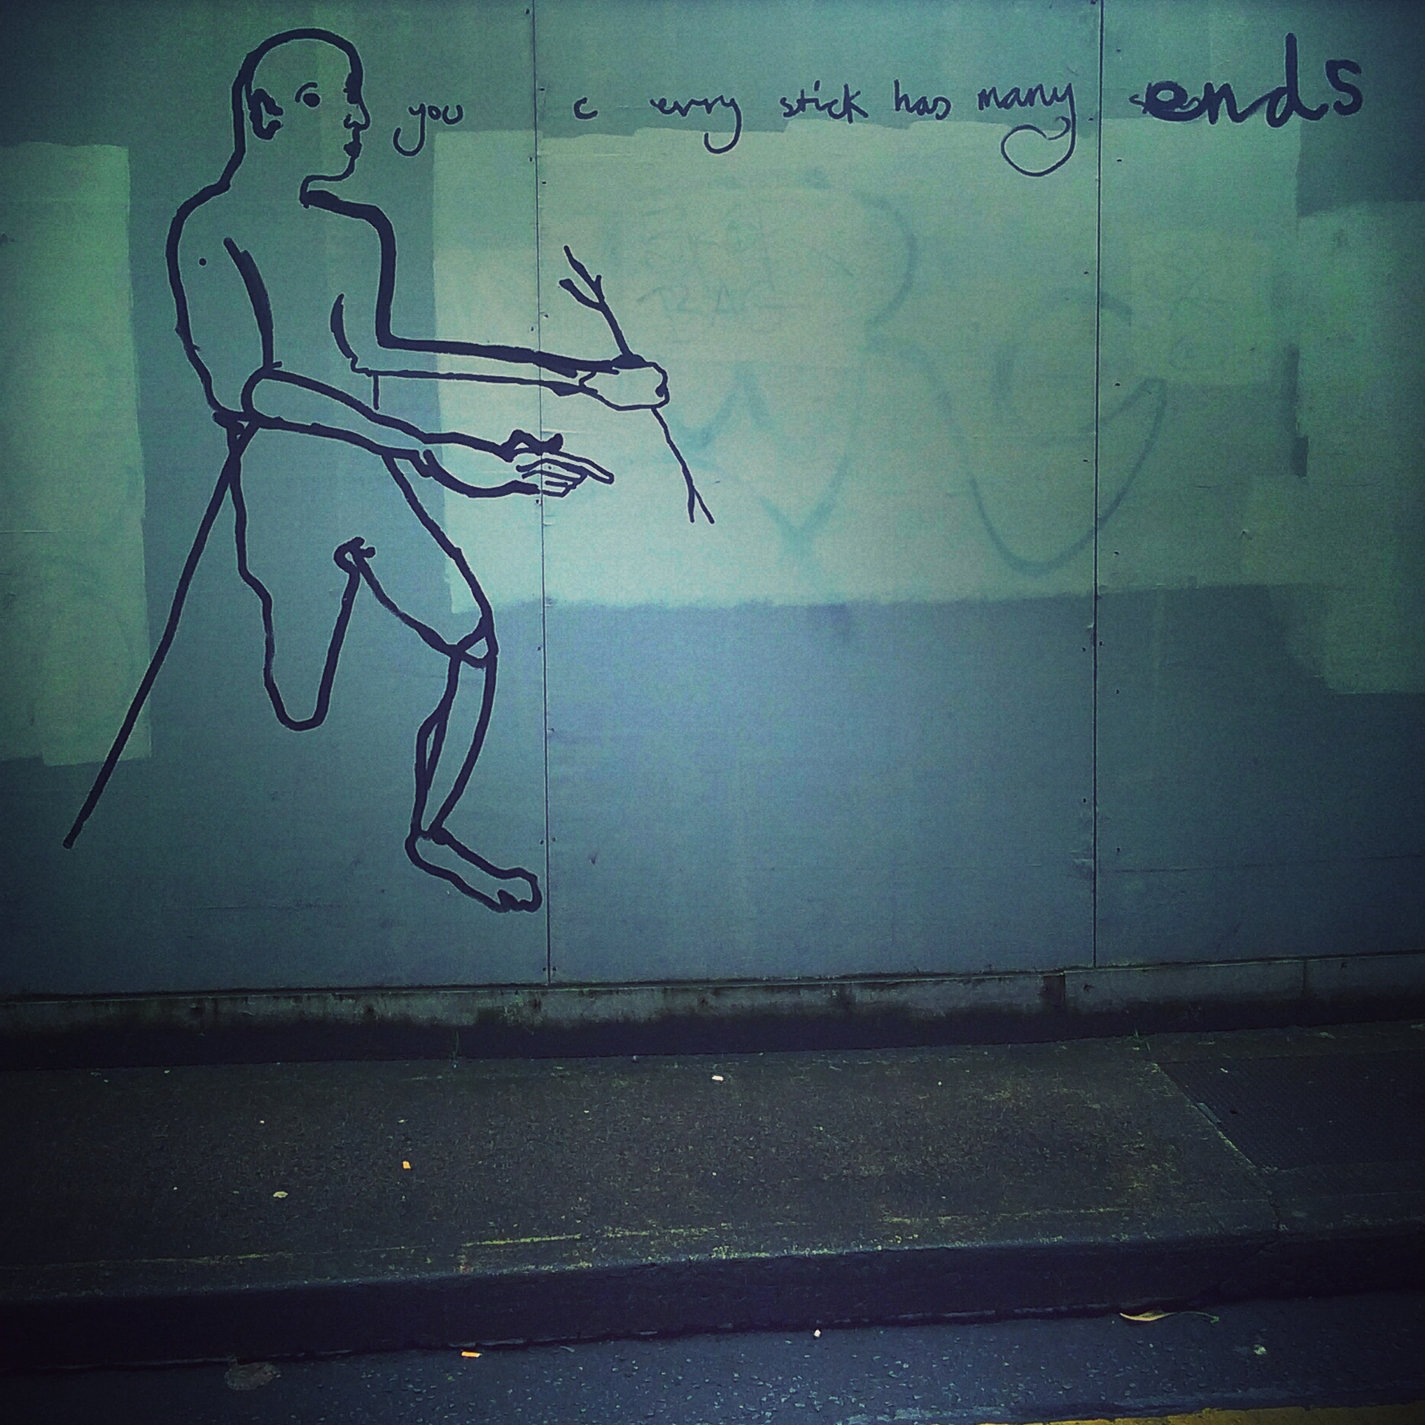 you c evry stick has many ends